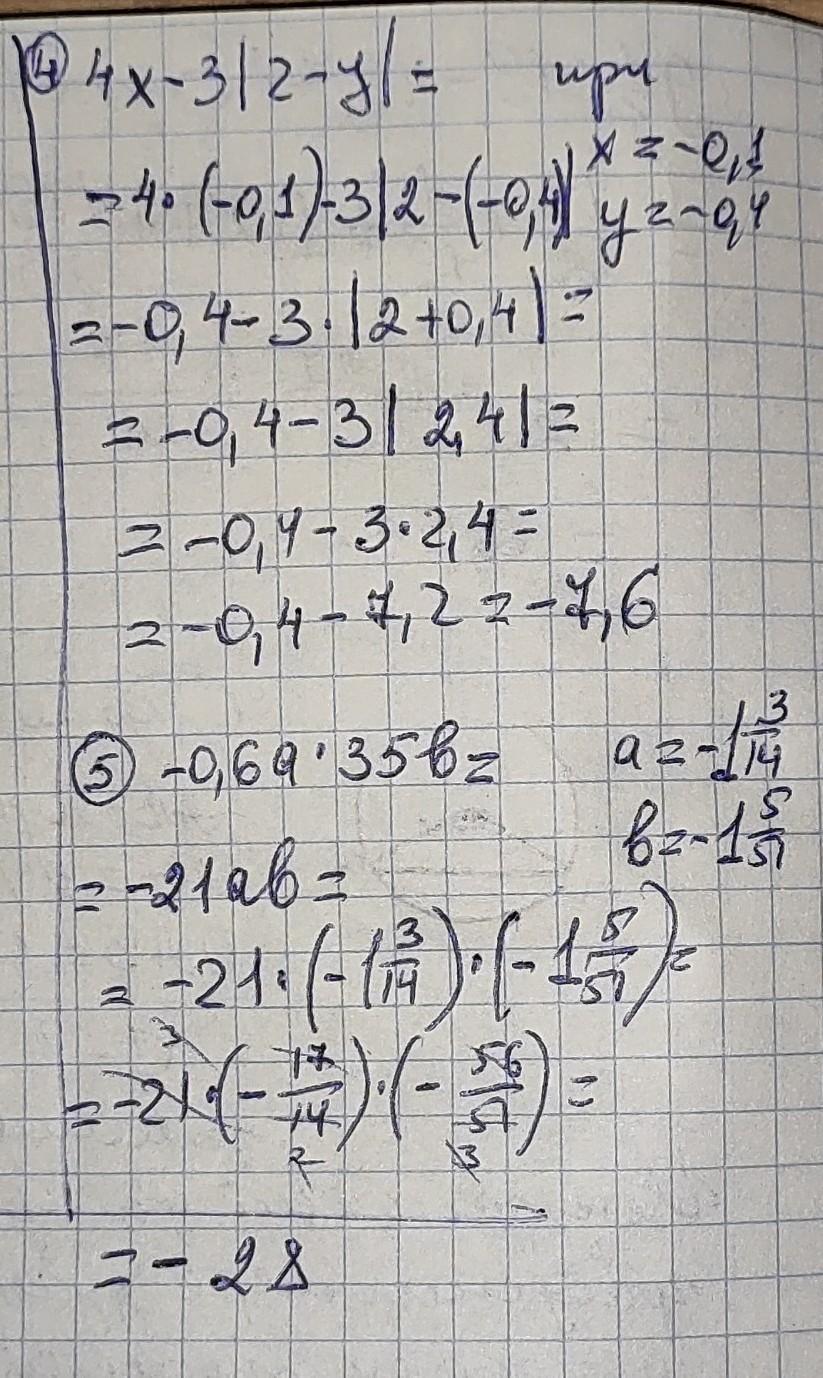 ④ 4x-3|2-y|= при
x=-0,1
=4·(-0,1)-3|2-(-0,4)| y=-0,4
=-0,4-3·|2+0,4|=
=-0,4-3|2,4|=
=-0,4-3·2,4=
=-0,4-7,2=-7,6
⑤ -0,6a·35b= a=-1 3/14
b=-1 5/51
=-21ab=
=-21·(-1 3/14)·(-1 5/51)=
3
=-21·(-17/14)·(-56/51)=
2 3
=-28